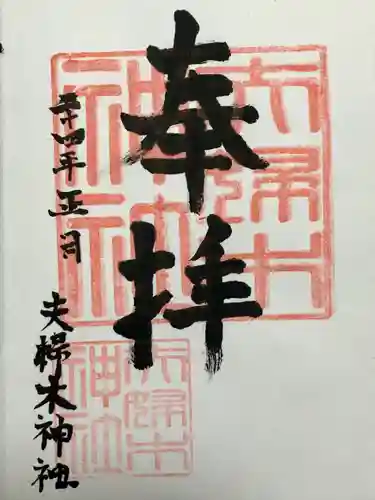 奉拝
二十四年正月
夫婦木神社
夫婦木神社
夫婦木神社